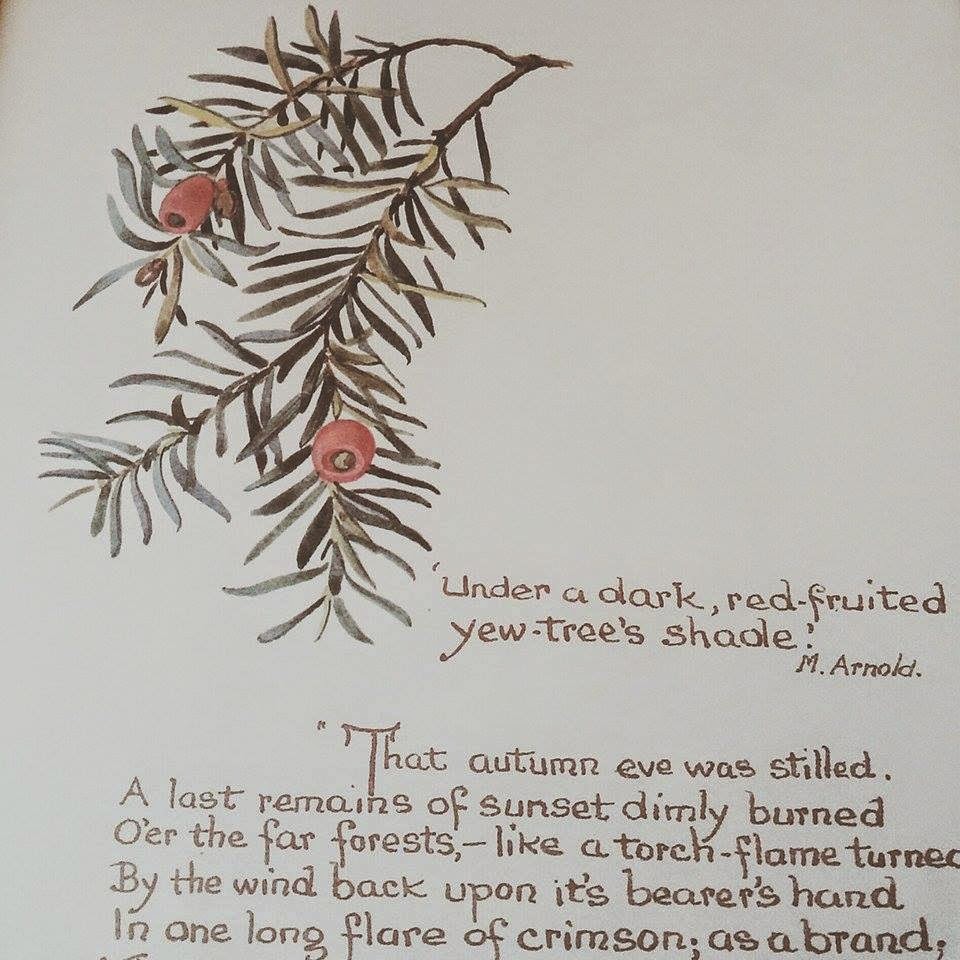 'Under a dark, red-fruited
yew-tree's shade.'
M. Arnold.
"That autumn eve was stilled.
A last remains of sunset dimly burned
O'er the far forests,– like a torch-flame turned
By the wind back upon it's bearer's hand
In one long flare of crimson; as a brand,